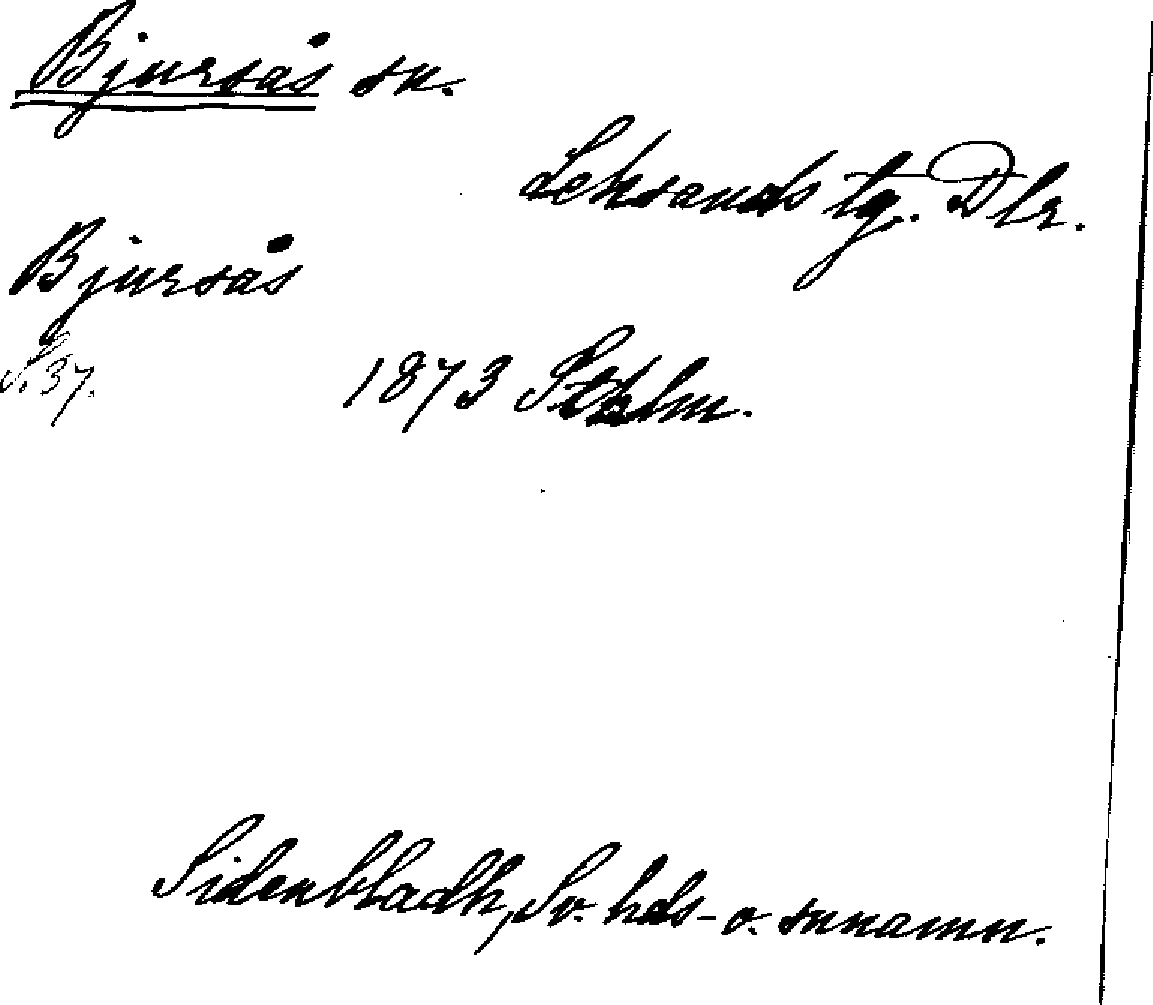 Bjursås sn.
Leksands tg. Dlr.
Bjursås
S. 37.
1873 Sthlm.
Sidenbladh, Sv. hds- o. snnamn.